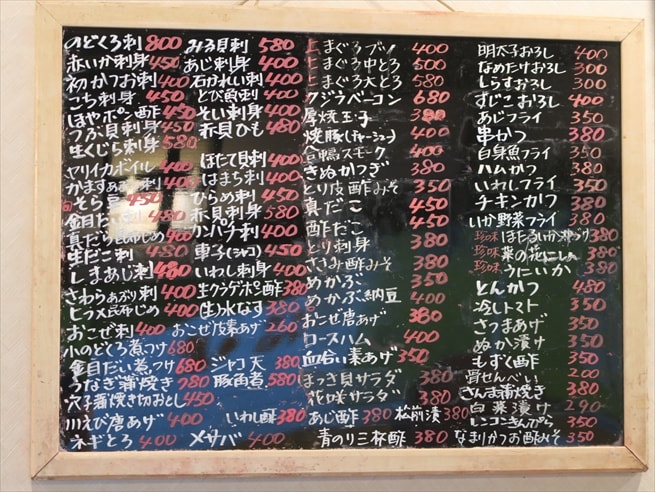 のどくろ刺 800
赤いか刺身 450
初かつお刺 400
こち刺身 450
ほやポン酢 450
つぶ貝刺 450
生くじら刺身 580
ヤリイカボイル 400
かますあぶり刺 400
そら豆 450
金目だい刺 480
真だら昆布じめ 400
生だこ刺 480
しまあじ刺 400
さわらあぶり刺 400
ヒラメ昆布じめ 400
おこぜ刺 400
小のどくろ煮つけ 680
金目だい煮つけ 680
うなぎ蒲焼き 980
穴子蒲焼き切おとし 450
川えび唐あげ 400
ネギとろ 400
みる貝刺 580
あじ刺身 400
石がれい刺 400
とび魚刺 400
そい刺身 400
赤貝ひも 480
ほたて貝刺 400
はまち刺 400
ひらめ刺 450
赤貝刺 580
カンパチ刺 400
車子(シャコ) 450
いわし刺身 400
生クラゲポン酢 380
(生)水なす 380
おこぜ皮素あげ 260
ジャコ天 380
豚角煮 580
いわし酢 380
メサバ 400
上まぐろブツ 400
上まぐろ中とろ 500
上まぐろ大とろ 580
クジラベーコン 680
厚焼玉子
焼豚(チャーシュー) 400
合鴨スモーク 400
きぬかつぎ 380
とり皮酢みそ 350
真だこ 450
酢だこ 450
とり刺身 380
ささみ酢みそ 380
めかぶ 350
めかぶ納豆 400
おこぜ唐あげ 380
ロースハム 400
血合い素あげ 350
まつき貝サラダ 380
花咲サラダ 380
あじ酢 380
松前漬 380
青のり三杯酢 380
明太子おろし 400
なめたけおろし 300
しらすおろし 300
すじこおろし 400
あじフライ 350
串かつ 380
白身魚フライ 350
ハムかつ 380
いわしフライ 350
チキンかつ 380
いか野菜フライ 380
珍味 ほたるいか沖づけ 380
珍味 菜の花にしん 380
珍味 うにいか 380
とんかつ 480
冷しトマト 350
さつまあげ 350
ぬか漬け 350
もずく酢 350
骨せんべい 200
さんま蒲焼き 380
白菜漬け 290
レンコンきんぴら 350
なまりかつお酢みそ 350